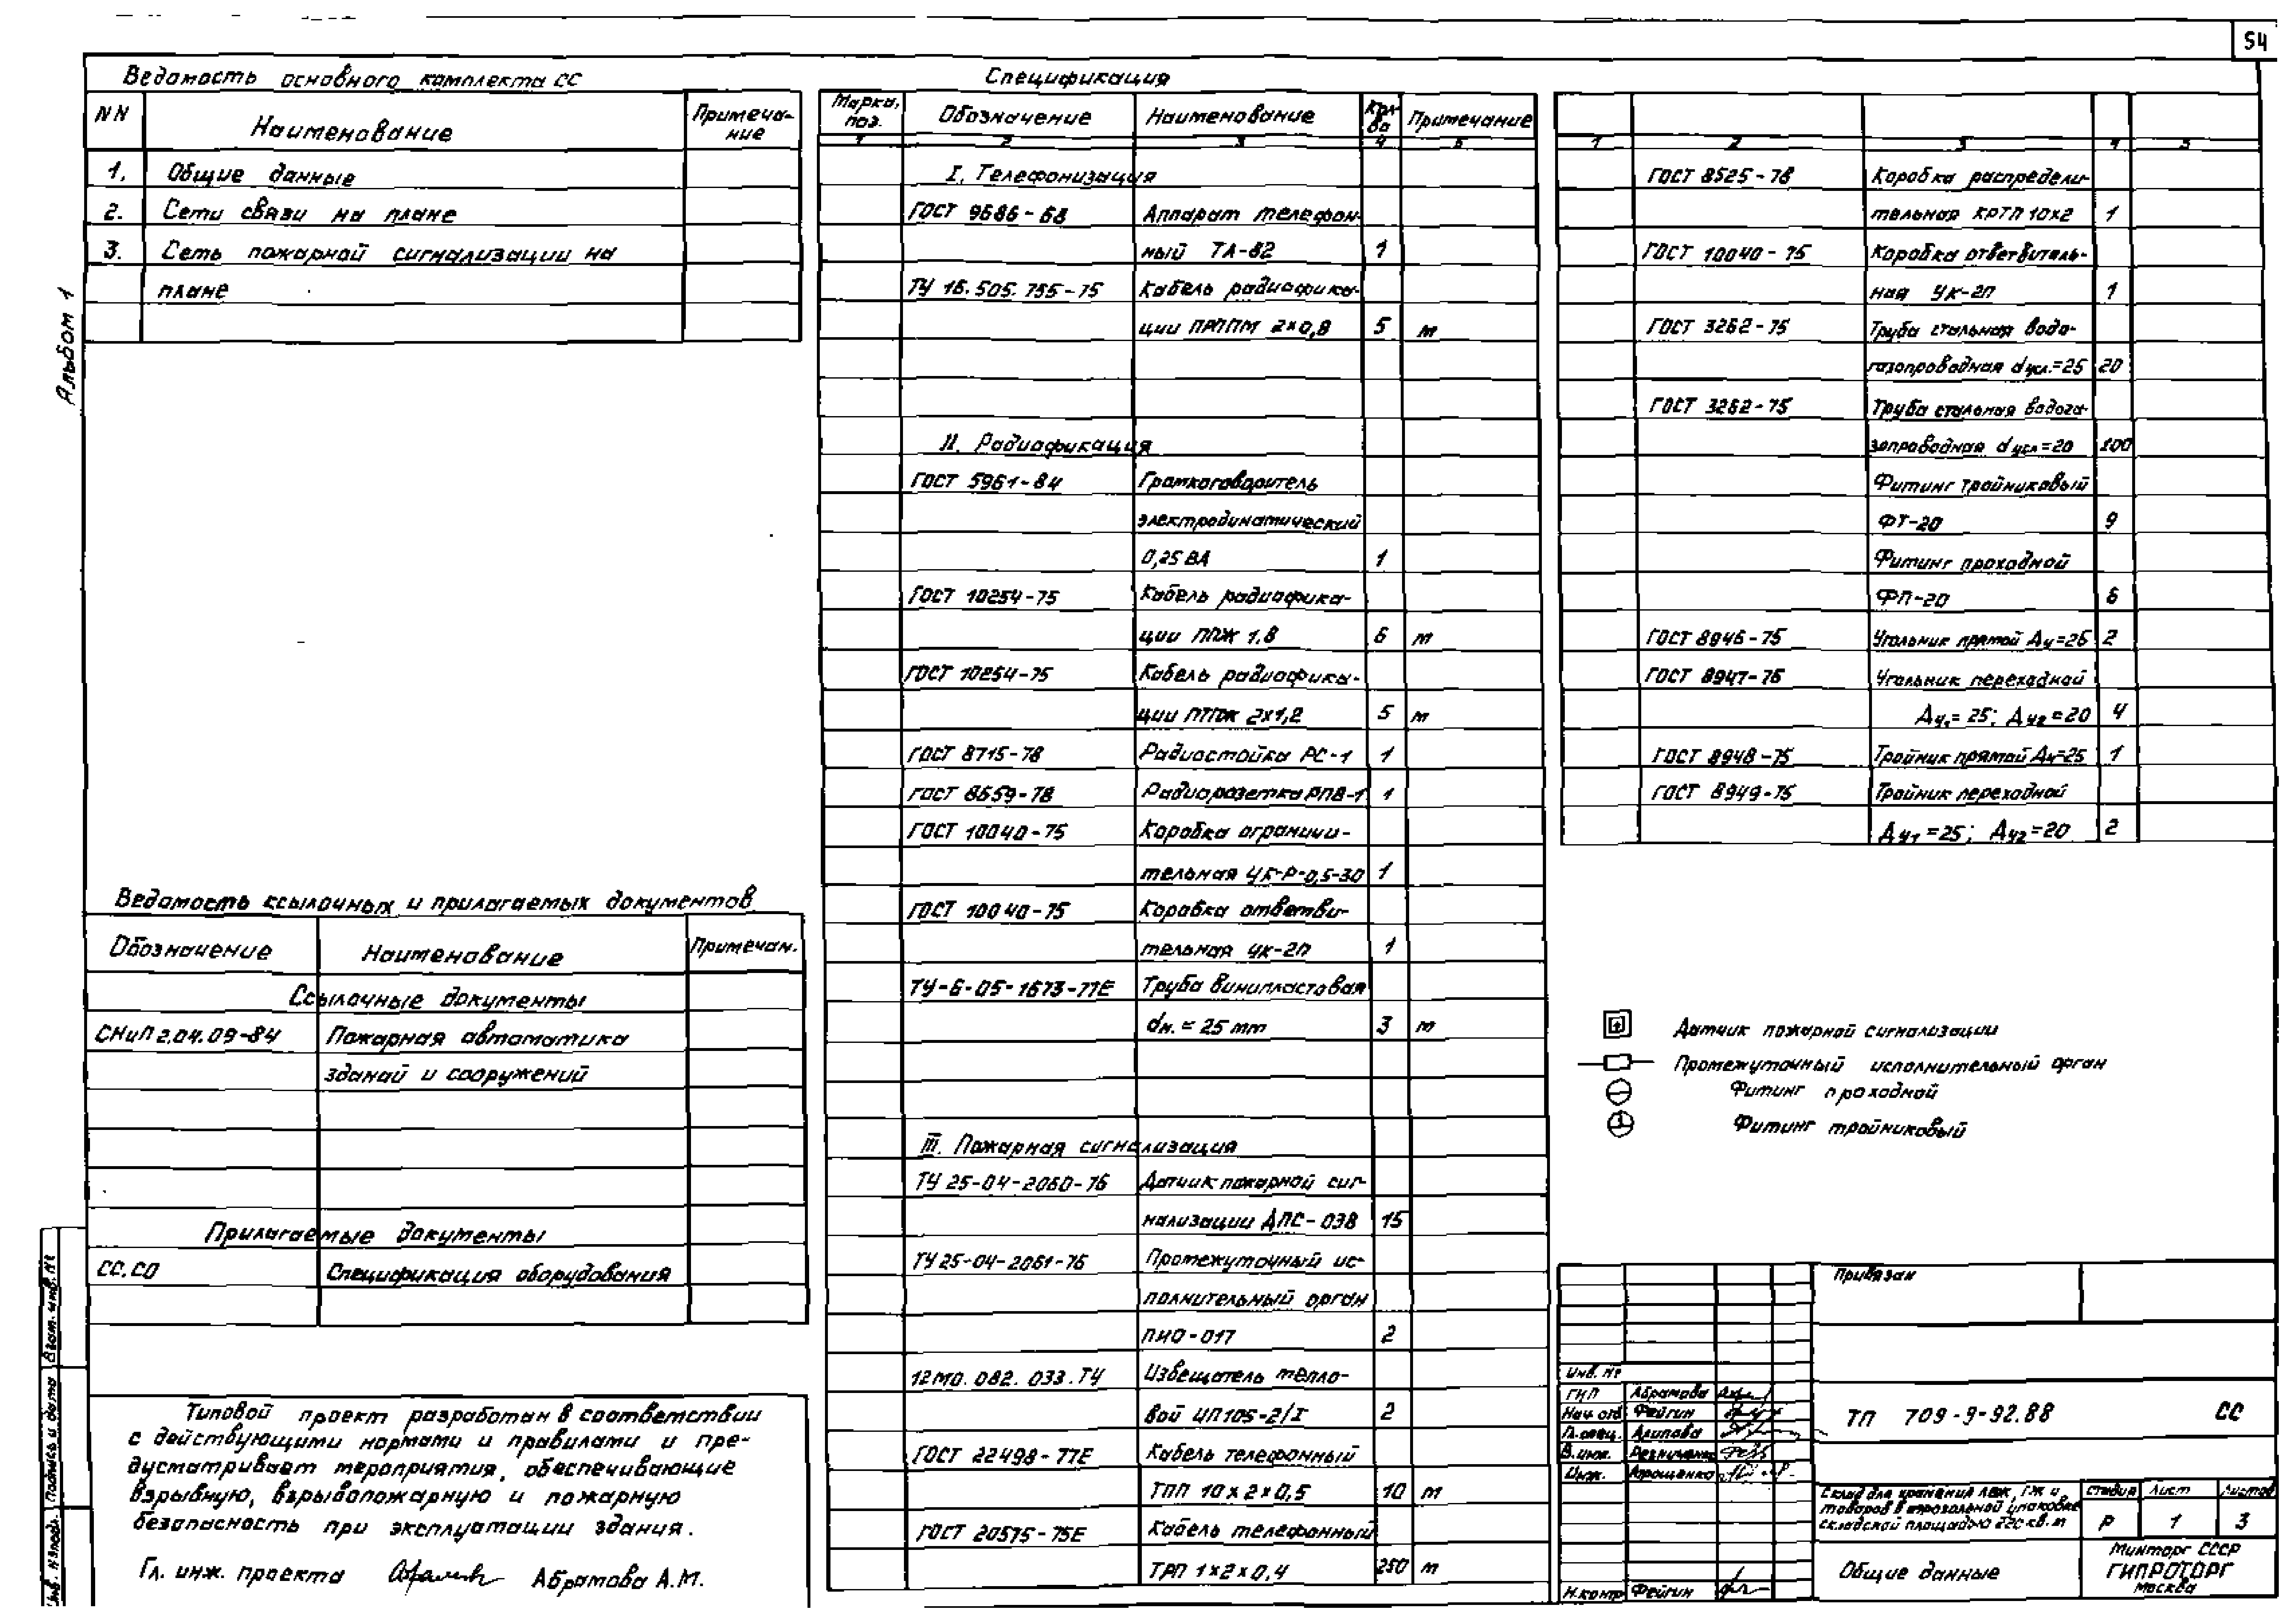 54
Альбом 1
Ведомость основного комплекта СС
NN Наименование Примеча-
ние
1. Общие данные
2. Сети связи на плане
3. Сеть пожарной сигнализации на
плане
Ведомость ссылочных и прилагаемых документов
Обозначение Наименование Примечан.
Ссылочные документы
СНиП 2.04.09-84 Пожарная автоматика
зданий и сооружений
Прилагаемые документы
СС.СО Спецификация оборудования
Типовой проект разработан в соответствии
с действующими нормами и правилами и пре-
дусматривает мероприятия, обеспечивающие
взрывную, взрывопожарную и пожарную
безопасность при эксплуатации здания.
Гл. инж. проекта Абрамова А.М.
Спецификация
Марка, поз. Обозначение Наименование Кол-ва Примечание
1 2 3 4 5
I. Телефонизация
ГОСТ 9686-68 Аппарат телефон-
ный ТА-82 1
ТУ 16.505.755-75 Кабель радиофика-
ции ПРППМ 2х0,8 5 м
II. Радиофикация
ГОСТ 5961-84 Громкоговоритель
электродинамический
0,25 ВА 1
ГОСТ 10254-75 Кабель радиофика-
ции ППЖ 1.8 6 м
ГОСТ 10254-75 Кабель радиофика-
ции ПТПЖ 2х1,2 5 м
ГОСТ 8715-78 Радиостойка РС-1 1
ГОСТ 8659-78 Радиорозетка РПВ-1 1
ГОСТ 10040-75 Коробка ограничи-
тельная УК-Р-0,5-30 1
ГОСТ 10040-75 Коробка ответви-
тельная УК-2П 1
ТУ-6-05-1573-77Е Труба винипластовая
dн. = 25 мм 3 м
III. Пожарная сигнализация
ТУ 25-04-2060-76 Датчик пожарной сиг-
нализации ДПС-038 15
ТУ 25-04-2061-76 Промежуточный ис-
полнительный орган
ПИО-017 2
12МО. 082. 033. ТУ Извещатель тепло-
вой ИП105-2/I 2
ГОСТ 22498-77Е Кабель телефонный
ТПП 10х2х0,5 10 м
ГОСТ 20575-75Е Кабель телефонный
ТРП 1х2х0,4 250 м
1 2 3 4 5
ГОСТ 8525-78 Коробка распредели-
тельная КРТП 10х2 1
ГОСТ 10040-75 Коробка ответвитель-
ная УК-2П 1
ГОСТ 3262-75 Труба стальная водо-
газопроводная dусл.=25 20
ГОСТ 3262-75 Труба стальная водога-
зопроводная dусл=20 100
Фитинг тройниковый
ФТ-20 9
Фитинг проходной
ФП-20 6
ГОСТ 8946-75 Угольник прямой Ду=25 2
ГОСТ 8947-75 Угольник переходной
Ду1=25; Ду2=20 4
ГОСТ 8948-75 Тройник прямой Ду=25 1
ГОСТ 8949-75 Тройник переходной
Ду1=25; Ду2=20 2
Датчик пожарной сигнализации
Промежуточный исполнительный орган
Фитинг проходной
Фитинг тройниковый
Привязан
Инв. №
ГИП Абрамова
Нач. отд Фейгин
Гл. спец.
В. инж.
Инж.
Н.контр Фейгин
ТП 709-9-92.88 СС
Склад для хранения ЛВЖ, ГЖ и
товаров в аэрозольной упаковке
складской площадью 220 кв. м
Стадия Лист Листов
Р 1 3
Общие данные
Минторг СССР
ГИПРОТОРГ
Москва
Взам. инв. №
Подпись и дата
Инв. № подл.